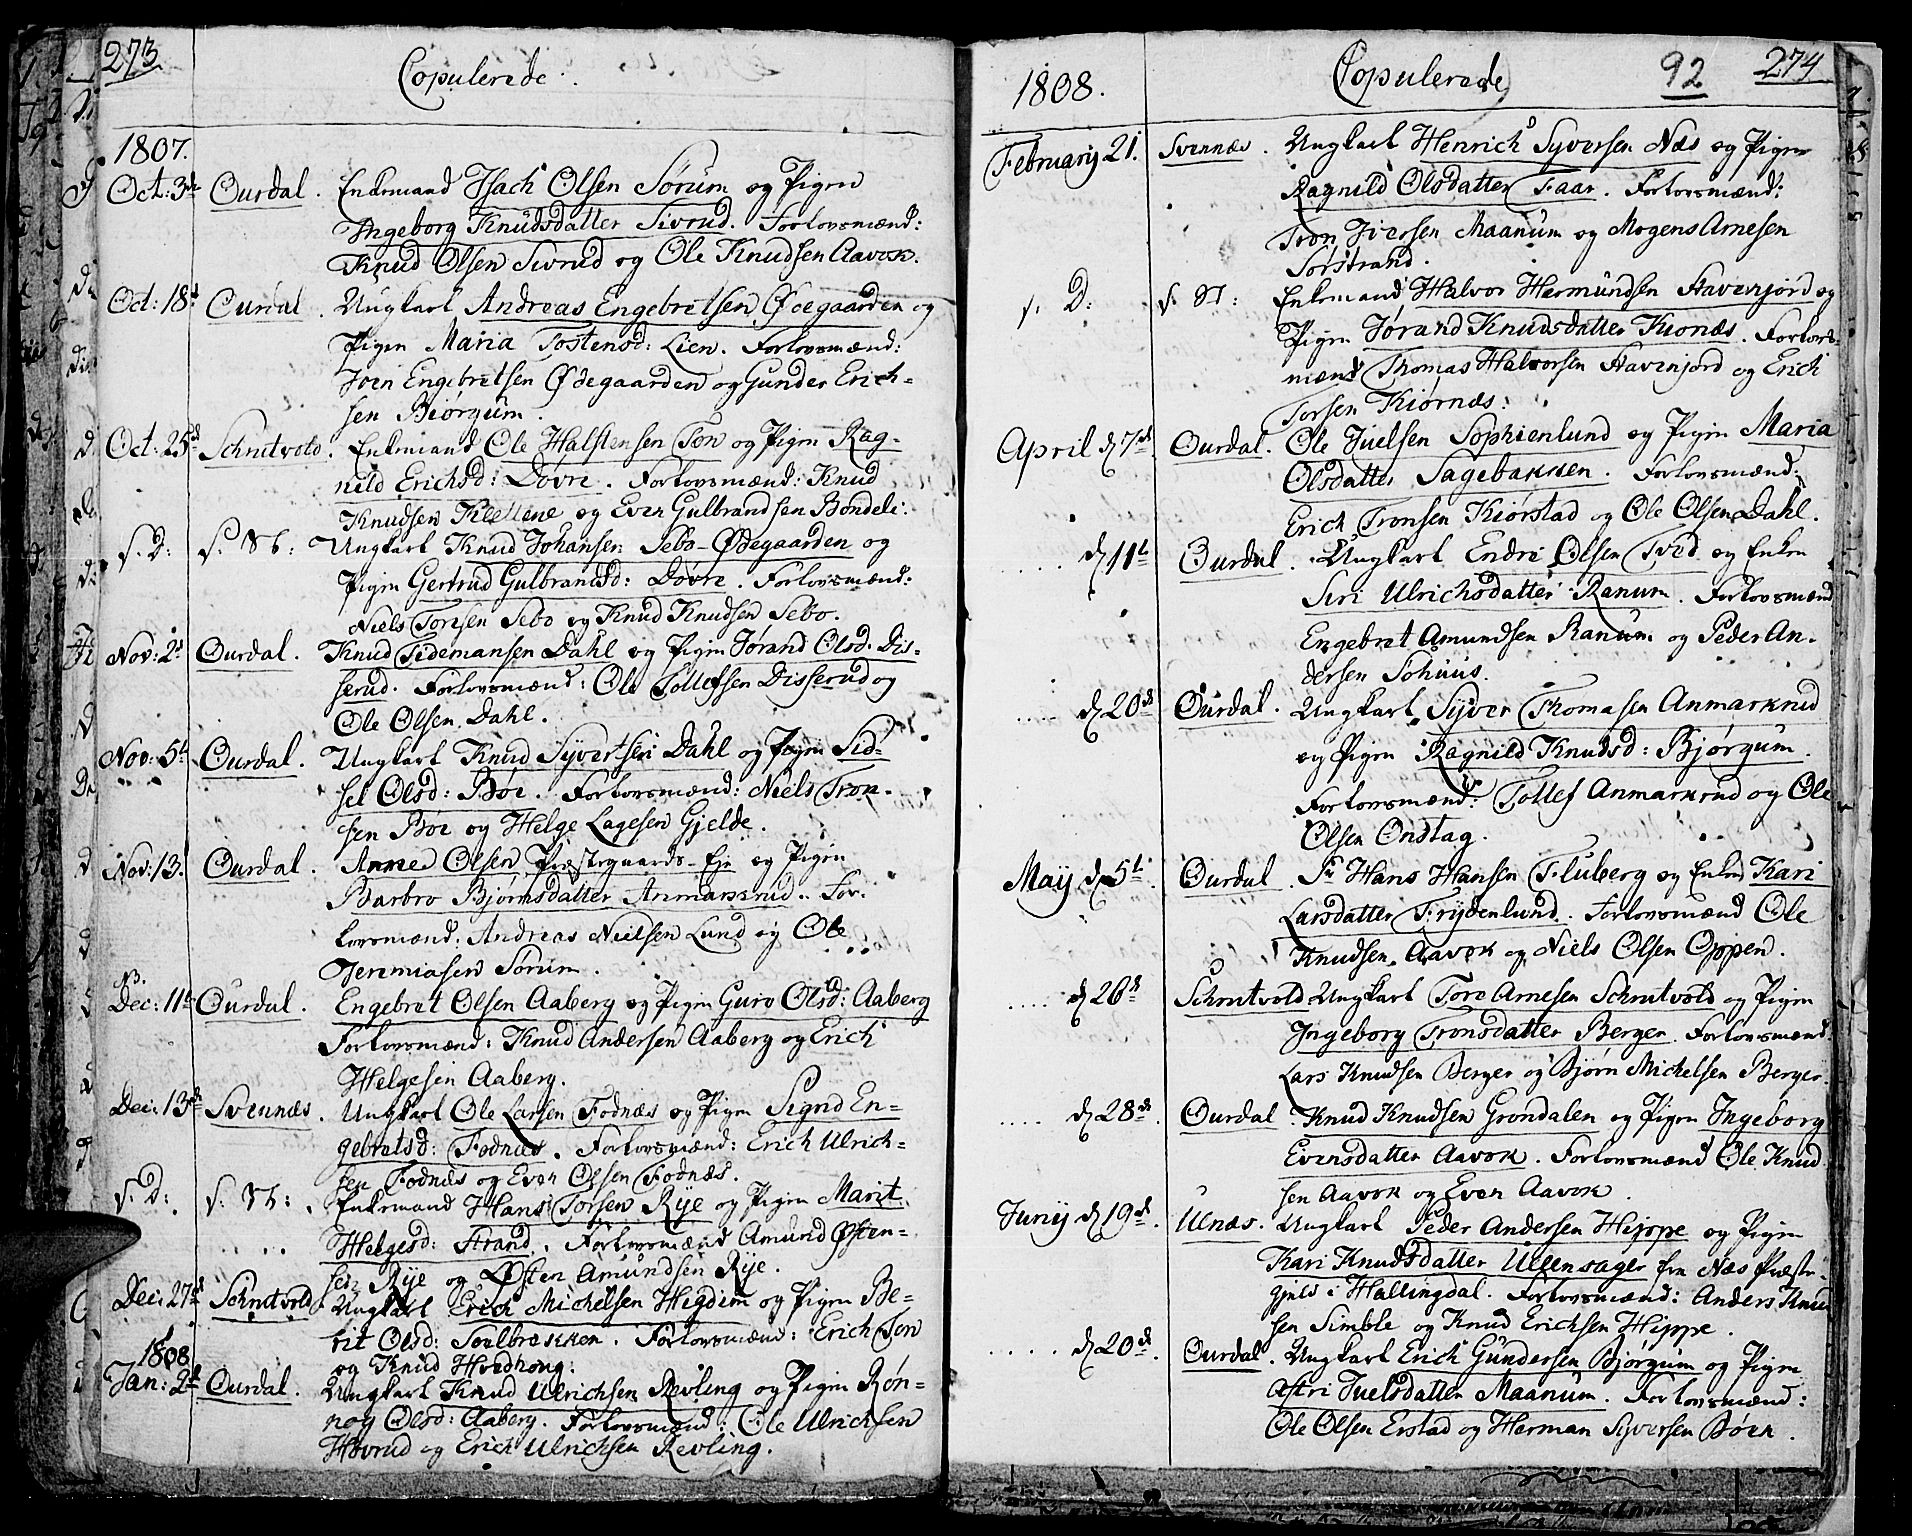 273
Copulerede.
1807.
Oct: 3de Ourdal. Enkemand Isach Olsen Sørum og Pigen
Ingeborg Knudsdatter Sivrud. Forlovsmænd:
Knud Olsen Sivrud og Ole Knudsen Aavok.
Oct: 18d Ourdal. Ungkarl Andreas Engebretsen Ødegaarden og
Pigen Maria Tostensd: Lien. Forlovsmænd:
Joen Engebretsen Ødegaarden og Gunder Erich-
sen Biørgum.
Oct: 25d Schrutvold. Enkemand Ole Halstensen Ton og Pigen Rag-
nild Erichsd: Dovre. Forlovsmænd: Knud
Knudsen Klettene og Even Gulbrandsen Bondeli.
s. D: s. St: Ungkarl Knud Johansen Sebo-Ødegaarden og
Pigen Gertrud Gulbrandsd: Dovre. Forlovsmænd:
Niels Toresen Sebo og Knud Knudsen Sebo.
Nov: 2d Ourdal. Knud Tidemansen Dahl og Pigen Jørand Olsd. Dis-
serud. Forlovsmænd: Ole Tollefsen Disserud og
Ole Olsen Dahl.
Nov: 5t Ourdal. Ungkarl Knud Syvertsen Dahl og Pigen Sid-
sel Olsd: Bøe. Forlovsmænd: Niels Tron-
sen Bøe og Helge Lagesen Gjelde.
Nov: 13. Ourdal. Arne Olsen Præstegaards-Eje og Pigen
Barbro Bjørnsdatter Anmarkrud. For-
lovsmænd: Andreas Nielsen Lund og Ole
Jeremiasen Sørum.
Dec: 11t Ourdal. Engebret Olsen Aaberg og Pigen Guro Olsd: Aaberg
Forlovsmænd: Knud Andersen Aaberg og Erich
Helgesen Aaberg.
Dec: 13de Svennæs. Ungkarl Ole Larsen Fodnæs og Pigen Signd En-
gebretsd: Fodnæs. Forlovsmænd: Erich Ulrich-
sen Fodnæs og Even Olsen Fodnæs.
s. D: s. St: Enkemand Hans Torsen Rye og Pigen Marit
Helgesd: Strand. Forlovsmænd Amund Østen-
sen Rye og Østen Amundsen Rye.
Dec: 27d Schrutvold Ungkarl Erich Michelsen Hegdem og Pigen Be-
rit Olsd: Toelbrækken. Forlovsmænd: Erich Ton
og Knud Hvedhoug.
1808
Jan: 2d Ourdal. Ungkarl Knud Ulrichsen Revling og Pigen Røn-
nog Olsd: Aaberg. Forlovsmænd: Ole Ulrichsen
Hovrud og Erich Ulrichsen Revling.
1808. Copulerede 92 274
February 21. Svennæs. Ungkarl Henrich Syversen Næs og Pigen
Ragnild Olsdatter Faar. Forlovsmænd:
Tron Iversen Maanum og Mogens Arnesen
Sørstrand.
s. D: s. St: Enkemand Halvor Hermundsen Stavenjord og
Pigen Jørand Knudsdatter Kiønæs. Forlovs-
mænd Thomas Halvorsen Stavenjord og Erich
Torsen Kiørnæs.
April d 7d Ourdal. Ole Juelsen Sophienlund og Pigen Maria
Olsdatter Sagebakken. Forlovsmænd:
Erich Tronsen Kiørstad og Ole Olsen Dahl.
..... d 11t Ourdal. Ungkarl Endre Olsen Tved og Enken
Siri Ulrichsdatter Ranum. Forlovsmænd
Engebret Amundsen Ranum og Peder An-
dersen Sohuus.
.... d 20d Ourdal. Ungkarl Syver Thomasen Anmarkrud
og Pigen Ragnild Knudsd: Bjørgum.
Forlovsmænd: Tollef Anmarkrud og Ole
Olsen Ondtag.
May d 5t Ourdal. Sr Hans Hansen Fluberg og Enken Kari
Larsdatter Frydenlund. Forlovsmænd Ole
Knudsen Aavok og Niels Olsen Oppen.
.... d 26d Schrutvold Ungkarl Tore Arnesen Schrutvold og Pigen
Ingeborg Tronsdatter Berger. Forlovsmænd
Lars Knudsen Berger og Bjørn Michelsen Berger.
..... d 28d. Ourdal. Knud Knudsen Grøndalen og Pigen Ingeborg
Evensdatter Aavok. Forlovsmænd Ole Knud
sen Aavok og Even Aavok.
Juny d 19d. Ulnæs. Ungkarl Peder Andersen Hippe og Pigen
Kari Knudsdatter Ullensager fra Næs Præste-
gjeld i Hallingdal. Forlovsmænd: Anders Knud
sen Simble og Knud Erichsen Hippe.
..... d 20d. Ourdal. Ungkarl Erich Gundersen Bjørgum og Pigen
Astri Juelsdatter Maanum. Forlovsmænd:
Ole Olsen Erstad og Herman Syversen Bøen.